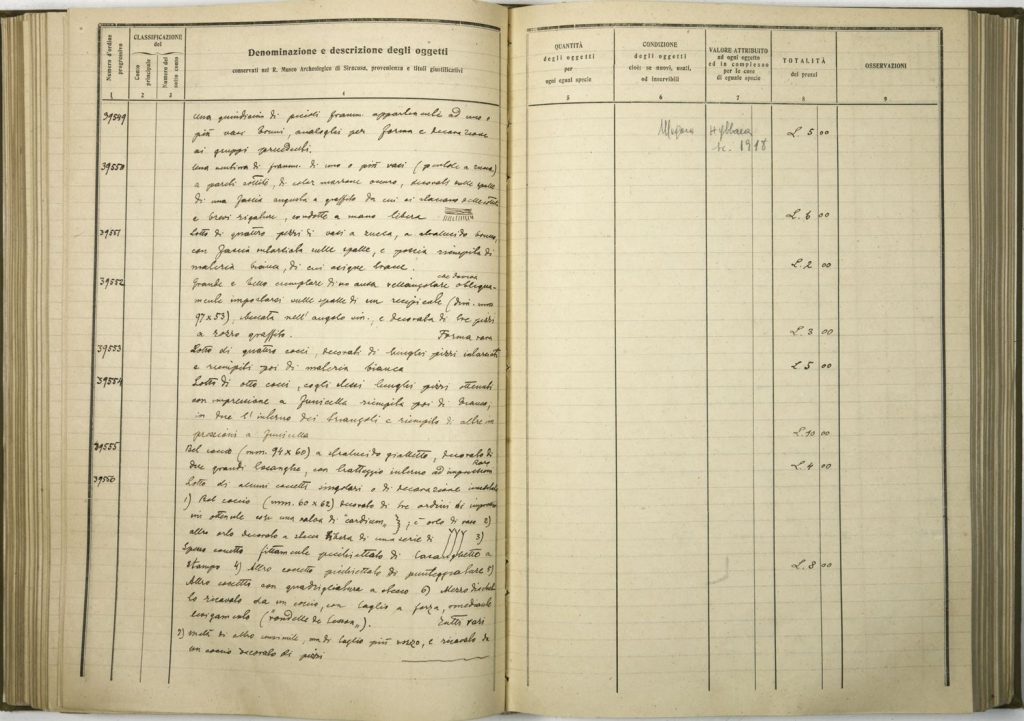 Numero d'ordine progressivo
CLASSIFICAZIONE del
Conto principale
Numero del sotto conto
Denominazione e descrizione degli oggetti
conservati nel R. Museo Archeologico di Siracusa, provenienza e titoli giustificativi
1 2 3 4
39549 Una quindicina di piccoli framm. appartenente ad uno o
più vasi bruni, analoghi per forma e decorazione
ai gruppi precedenti.
39550 Una ventina di framm. di uno o più vasi (
a pareti sottili, di color marrone oscuro, decorati sulle spalle
di una fascia angusta a graffito da cui si
e brevi rigature, condotte a mano libera
39551 Lotto di quattro pezzi di vasi a zucca, a
con fascia intarsiata sulle spalle, e poscia riempita di
materia bianca, di cui esigue trace.
39552 Grande e bello exemplare di una ansa rettangolare che doveva obliqua-
mente impostarsi sulle spalle di un recipiente (dim. mm.
97 x 53), nell'angolo , e decorata di tre pizzi
a rozzo graffito. Forma rara
39553 Lotto di quattro cocci, decorati di lunghi pizzi intarsiati
e riempiti poi di materia bianca
39554 Lotto di otto cocci, cogli stessi lunghi pizzi ottenuti
con impressione a funicella riempita poi di bianco;
in due l'interno dei triangoli è riempito di altre im
pressioni a funicella
39555 Bel coccio (mm. 94 x 60) a gialletto, decorato di
due grandi losanghe, con tratteggio interno ad impressioni Raro
39556 Lotto di alcuni coccetti singolari o di decorazione
1) Bel coccio (mm. 60 x 62) decorato di tre ordini di impressio
ni ottenute con una valva di "cardium" ; è orlo di vaso 2)
altro orlo decorato a libera di una serie di 3)
Spesso coccetto fittamente picchiettato di losanghette a
stampo 4) Altro coccetto picchiettato di punteggiature 5)
Altro coccetto con quadrigliatura a stecco 6) Mezzo dischet
to ricavato da un coccio, con taglio a forza, mediante
levigamento ("rondelle de "). Tutti vari
7) metà di altro consimile, ma di taglio più rozzo, e ricavato da
un coccio decorato di pizzi
QUANTITÀ
degli oggetti
per
ogni egual specie
CONDIZIONE
degli oggetti
cioè: se nuovi, usati,
od inservibili
VALORE ATTRIBUITO
ad ogni oggetto
ed in complesso
per le cose
di eguale specie
TOTALITÀ
dei prezzi
OSSERVAZIONI
5 6 7 8 9
Megara Hyblaea
sc. 1918
L. 5 00
L. 6 00
L. 2 00
L. 3 00
L. 5 00
L. 10 00
L. 4 00
L. 8 00